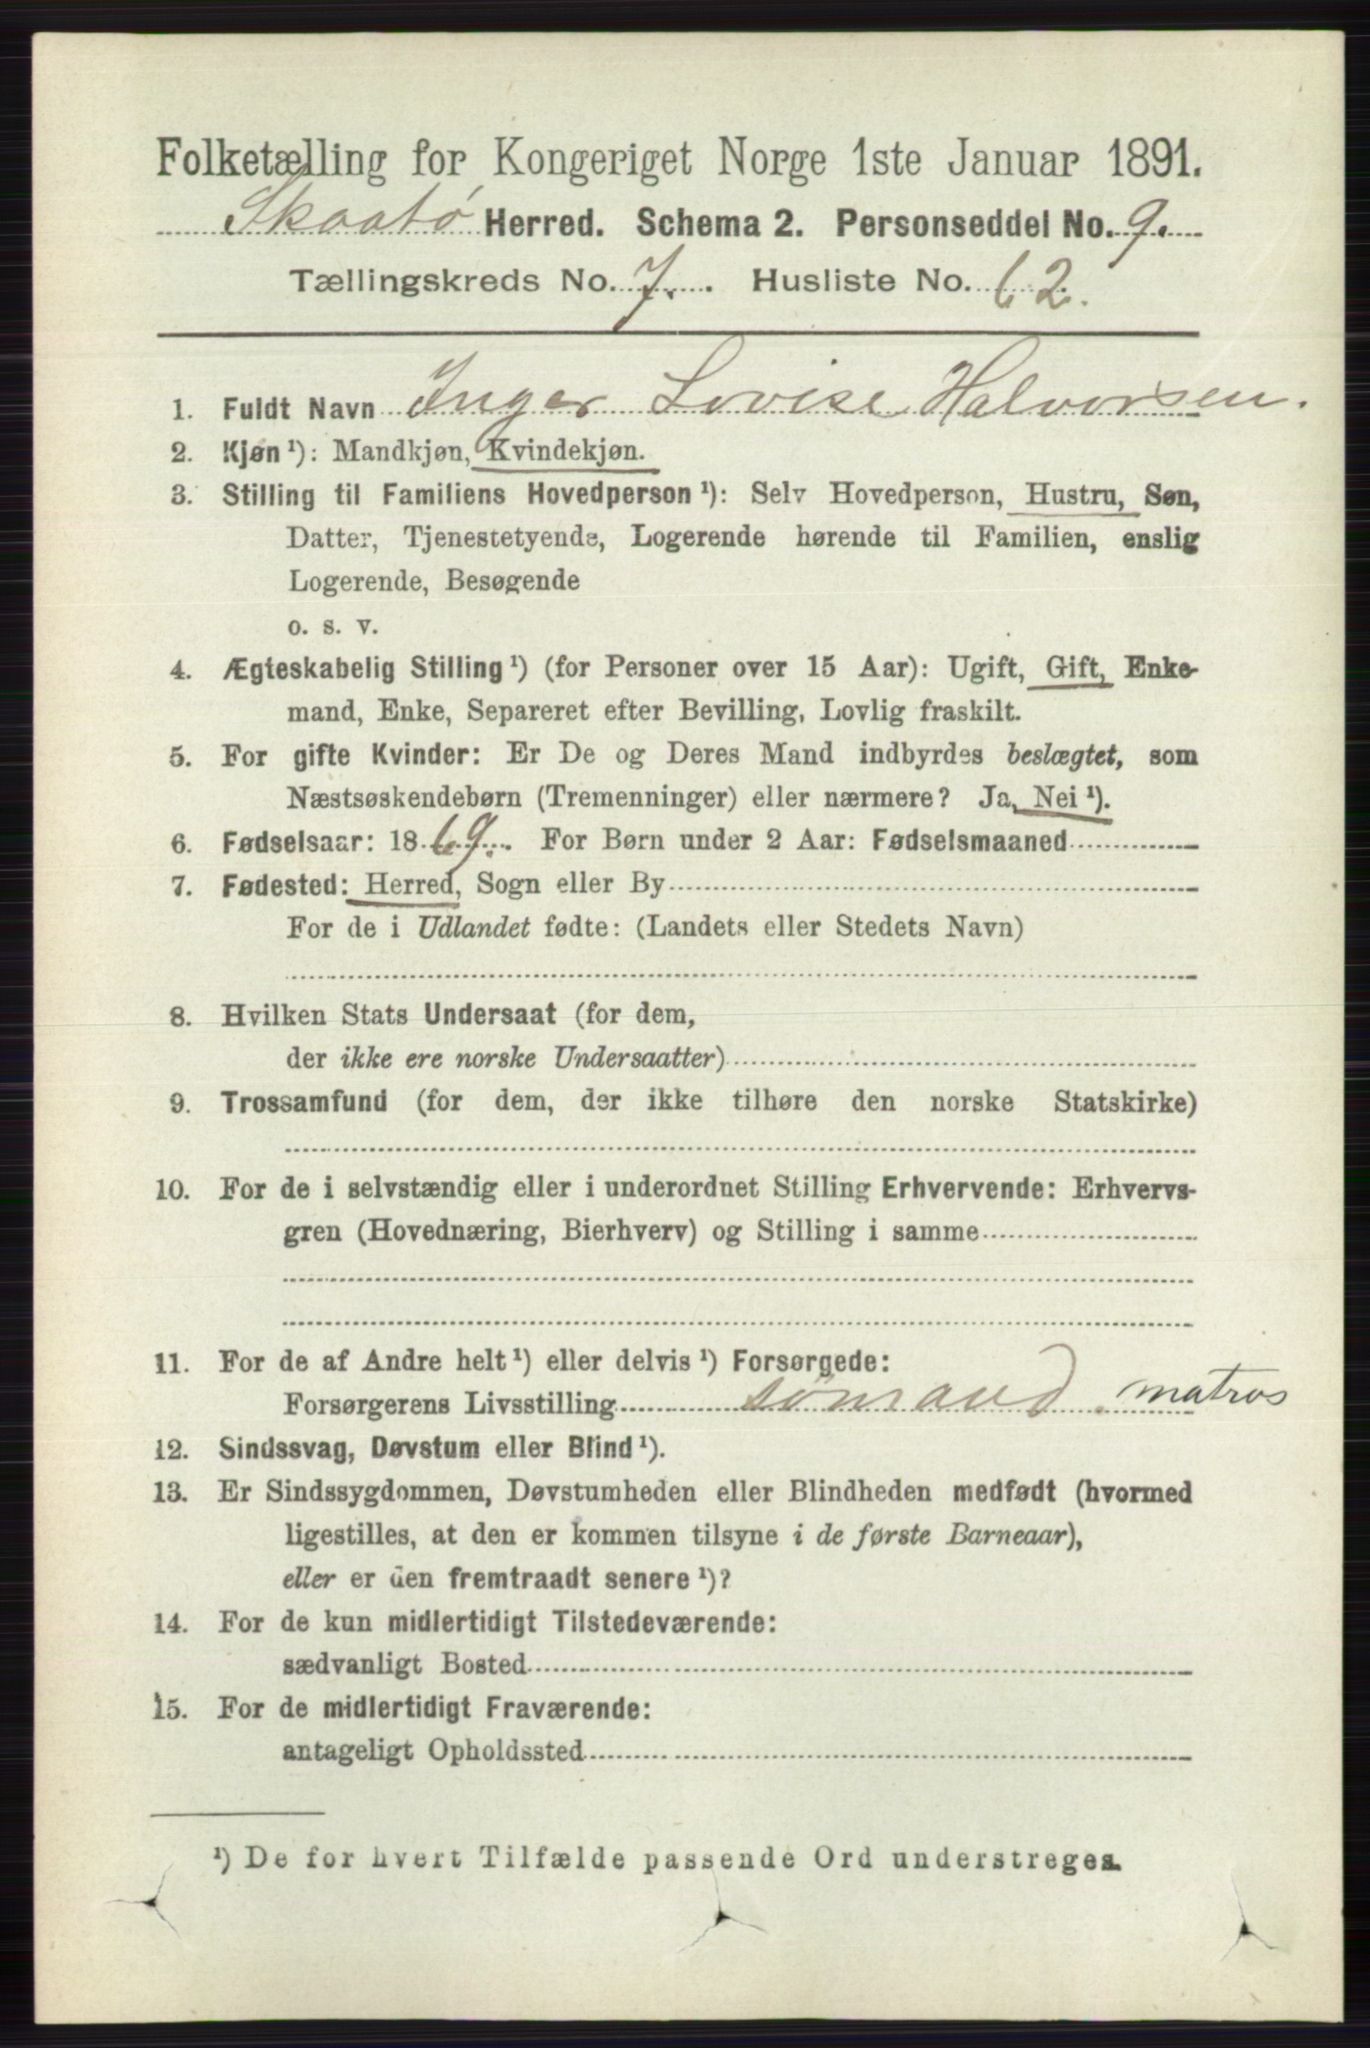 Folketælling for Kongeriget Norge 1ste Januar 1891.
Skaatø Herred. Schema 2. Personseddel No. 9.
Tællingskreds No. 7. Husliste No. 62.
1. Fuldt Navn Inger Lovise Halvorsen.
2. Kjøn ¹): Mandkjøn, Kvindekjøn.
3. Stilling til Familiens Hovedperson ¹): Selv Hovedperson, Hustru, Søn,
Datter, Tjenestetyende, Logerende hørende til Familien, enslig
Logerende, Besøgende
o. s. v.
4. Ægteskabelig Stilling ¹) (for Personer over 15 Aar): Ugift, Gift, Enke-
mand, Enke, Separeret efter Bevilling, Lovlig fraskilt.
5. For gifte Kvinder: Er De og Deres Mand indbyrdes beslægtet, som
Næstsøskendebørn (Tremenninger) eller nærmere? Ja, Nei ¹).
6. Fødselsaar: 1869. For Børn under 2 Aar: Fødselsmaaned
7. Fødested: Herred, Sogn eller By
For de i Udlandet fødte: (Landets eller Stedets Navn)
8. Hvilken Stats Undersaat (for dem,
der ikke ere norske Undersaatter)
9. Trossamfund (for dem, der ikke tilhøre den norske Statskirke)
10. For de i selvstændig eller i underordnet Stilling Erhvervende: Erhvervs-
gren (Hovednæring, Bierhverv) og Stilling i samme
11. For de af Andre helt ¹) eller delvis ¹) Forsørgede:
Forsørgerens Livsstilling sømand. matros
12. Sindssvag, Døvstum eller Blind ¹).
13. Er Sindssygdommen, Døvstumheden eller Blindheden medfødt (hvormed
ligestilles, at den er kommen tilsyne i de første Barneaar),
eller er den fremtraadt senere ¹)?
14. For de kun midlertidigt Tilstedeværende:
sædvanligt Bosted
15. For de midlertidigt Fraværende:
antageligt Opholdssted
¹) De for hvert Tilfælde passende Ord understreges.